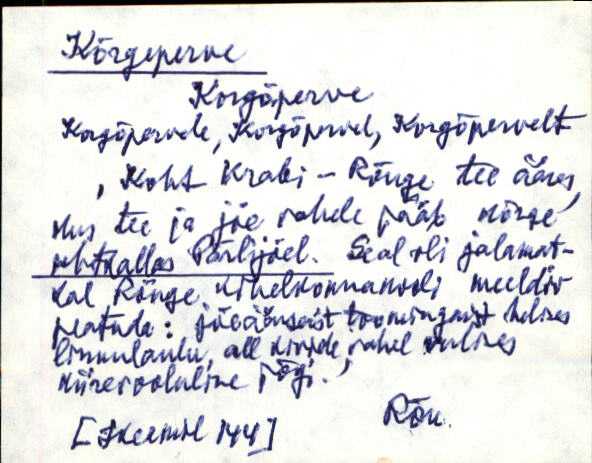 Kõrgeperve
Korgõperve
Korgõpervele, Korgõpervel, Korgõpervelt
, Koht Krabi – Rõuge tee ääres,
kus tee ja jõe vahele jääb kõrge
ühtkallas Pärlijõel. Seal oli jalamat-
kal Rõuge kihelkonnakooli meeldiv
peatuda: jõeäärseist toomingaist helises
linnulaulu, all kivide vahel vulises
kiirevooluline jõgi.
Rõu.
[ 144]